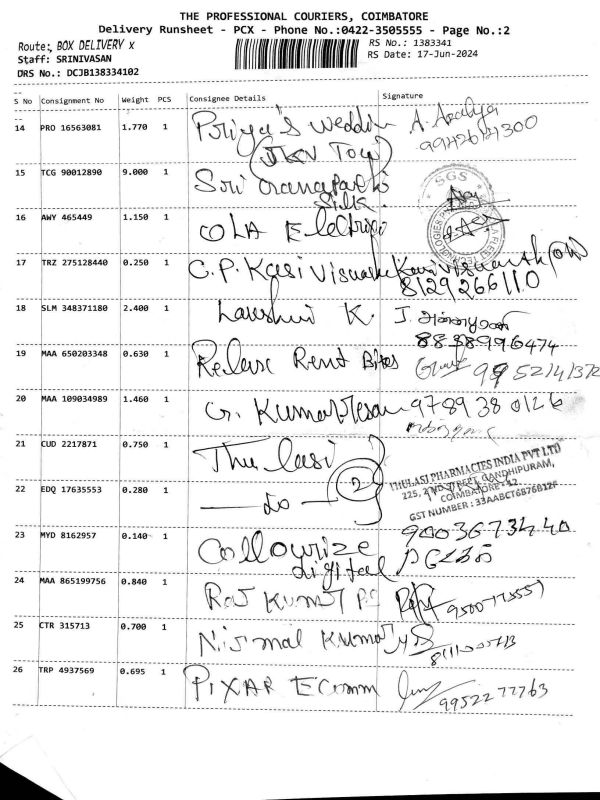 THE PROFESSIONAL COURIERS, COIMBATORE
Delivery Runsheet - PCX - Phone No.:0422-3505555 - Page No.:2
Route:, BOX DELIVERY x
Staff: SRINIVASAN
DRS No.: DCJB138334102
RS No.: 1383341
RS Date: 17-Jun-2024
S No Consignment No Weight PCS Consignee Details Signature
14 PRO 16563081 1.770 1 Priya's Weddin
15 TCG 90012890 9.000 1 Sri
Silk.
SGS
16 AWY 465449 1.150 1 OLA
17 TRZ 275128440 0.250 1 C.P. Kasi
8129266110
18 SLM 348371180 2.400 1 K. J.
19 MAA 650203348 0.630 1 Rent Bites
20 MAA 109034989 1.460 1 G. 9789380126
21 CUD 2217871 0.750 1 Thulasi
THULASI PHARMACIES INDIA PVT LTD
22 EDQ 17635553 0.280 1 — do — 2
225, 2ND STREET, GANDHIPURAM,
COIMBATORE - 12
GST NUMBER : 33AABCT6876B12F
23 MYD 8162957 0.140 1 Collourize
digital
24 MAA 865199756 0.840 1 Raj Kumar
25 CTR 315713 0.700 1 Nirmal Kumar
26 TRP 4937569 0.695 1 PIXAR Ecomm
9952277763